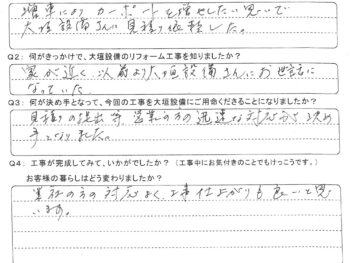 増車により カーポートを増やしたい思いで
大垣設備さんに見積り依頼した。
Q2: 何がきっかけで、大垣設備のリフォーム工事を知りましたか?
家が近く、以前より大垣設備さんにお世話に
なっていた
Q3: 何が決め手となって、今回の工事を大垣設備にご用命くださることになりましたか?
見積りの提出等 営業の方の迅速な対応が決め
手となりました。
Q4: 工事が完成してみて、いかがでしたか?(工事中にお気付きのことでもけっこうです。)
お客様の暮らしはどう変わりましたか?
業者の方の対応よく、工事仕上がりも良いと思
います。